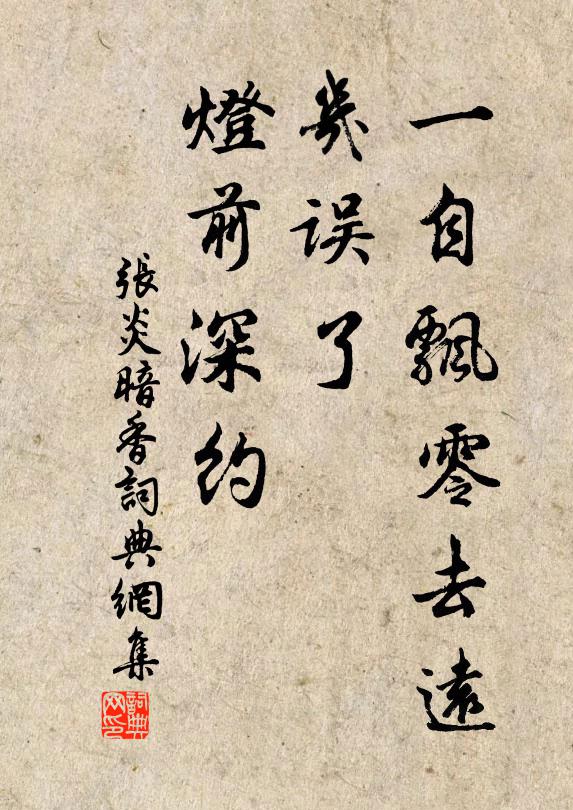 一自飄零去遠
幾誤了
燈前深約
張炎暗香詞典網集
詞典網印